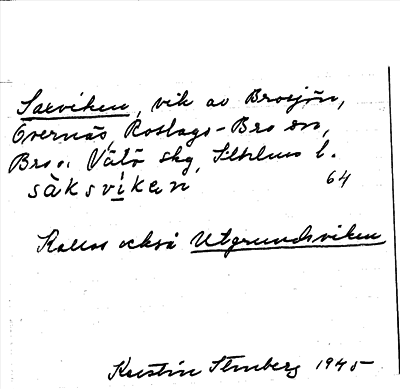 Saxviken, vik av Brosjön,
Övernäs, Roslags-Bro sn,
Bro o. Vätö skg, Sthlms l.
sàksvìkan 64
Kallas också Utgrundsviken
Kerstin Stenberg 1945